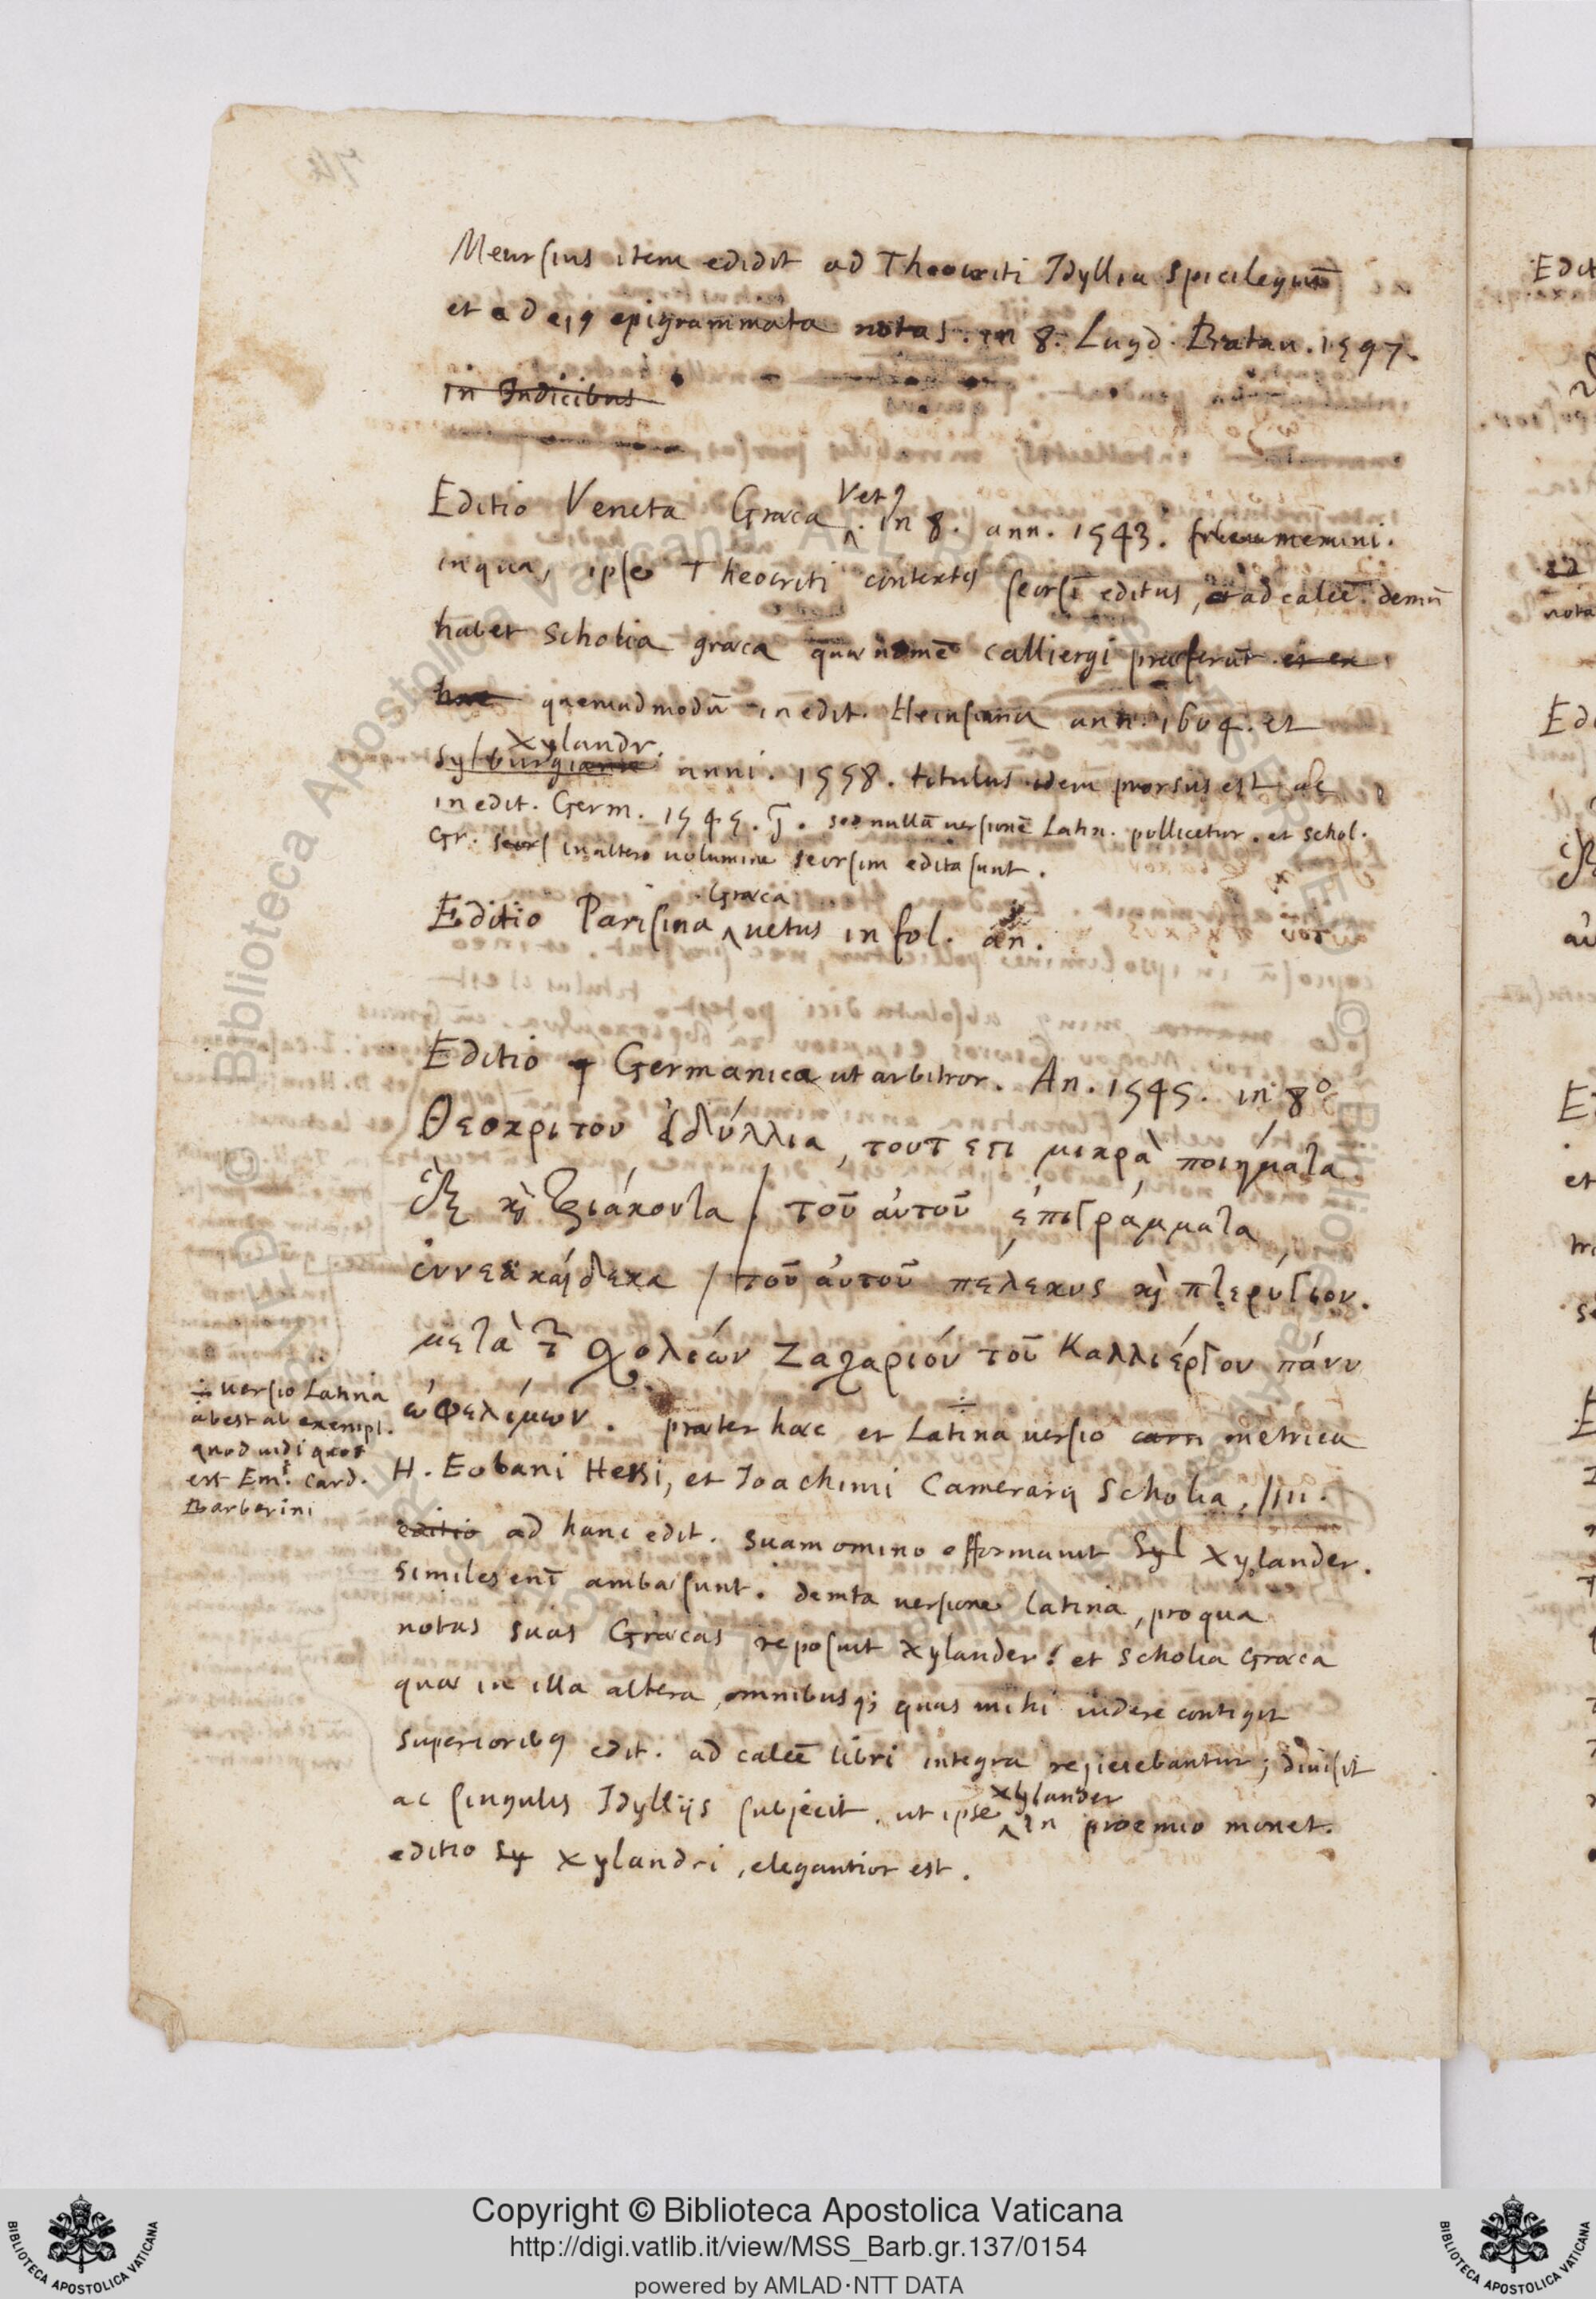 Meursius item edidit ad Theocriti Idyllia Spicilegiū
et ad ei9 epigrammata notas. in 8. Lugd. Batau. 1597.
in Indicibus
Editio Veneta Græca Vet9. in 8. ann. 1543. memini.
in qua, ipse Theocriti contextus seorsī editus, ad calcē demū
habet Scholia græca quæ nomē calliergi præferūt et ex
hac quemadmodū in edit. Heinsiana ann. 1604. et
Xylandr.
Sylburgiana anni. 1558. titulus idem prorsus est ac
in edit. Germ. 1545. sed nullā uersionē Latin. pollicetur. et schol.
Gr. seors in altero uolumine seorsim edita sunt.
Editio Parisina Græca uetus in fol. an.
Editio Germanica ut arbitror. An. 1545. in 8º
Θεοκρίτου ἐιδύλλια, τουτέστι μικρὰ ποιήματα
ἓξ κὶ τριάκοντα / τοῦ ἀυτοῦ ἐπιγράμματα
ἐννεακάιδεκα / τοῦ ἀυτοῦ πέλεκυς κὶ πτερύγιον.
μετὰ τ̃ σχολιών Ζαχαρίου τοῦ Καλλιέργου πάνυ
ὠφελίμων. præter hæc et Latina uersio cam metrica
÷ uersio Latina
abest ab exempl.
quod uidi quod
est Emi. Card.
Barberini
H. Eobani Hessi, et Ioachimi Camerarij Scholia.
editio ad hanc edit. suam omino efformauit Syl Xylander.
Similes enī ambæ sunt. demta uersione latina, pro qua
notas suas Græcas reposuit Xylander: et Scholia Græca
quæ in illa altera, omnibusq; quas mihi uidere contigit
superiorib9 edit. ad calcē libri integra rejiciebantur; diuisit
ac singulis Idyllijs subjecit. ut ipse xylander in proemio monet.
editio Sy Xylandri, elegantior est.
Copyright © Biblioteca Apostolica Vaticana
http://digi.vatlib.it/view/MSS_Barb.gr.137/0154
powered by AMLAD·NTT DATA
BIBLIOTECA APOSTOLICA VATICANA
BIBLIOTECA APOSTOLICA VATICANA